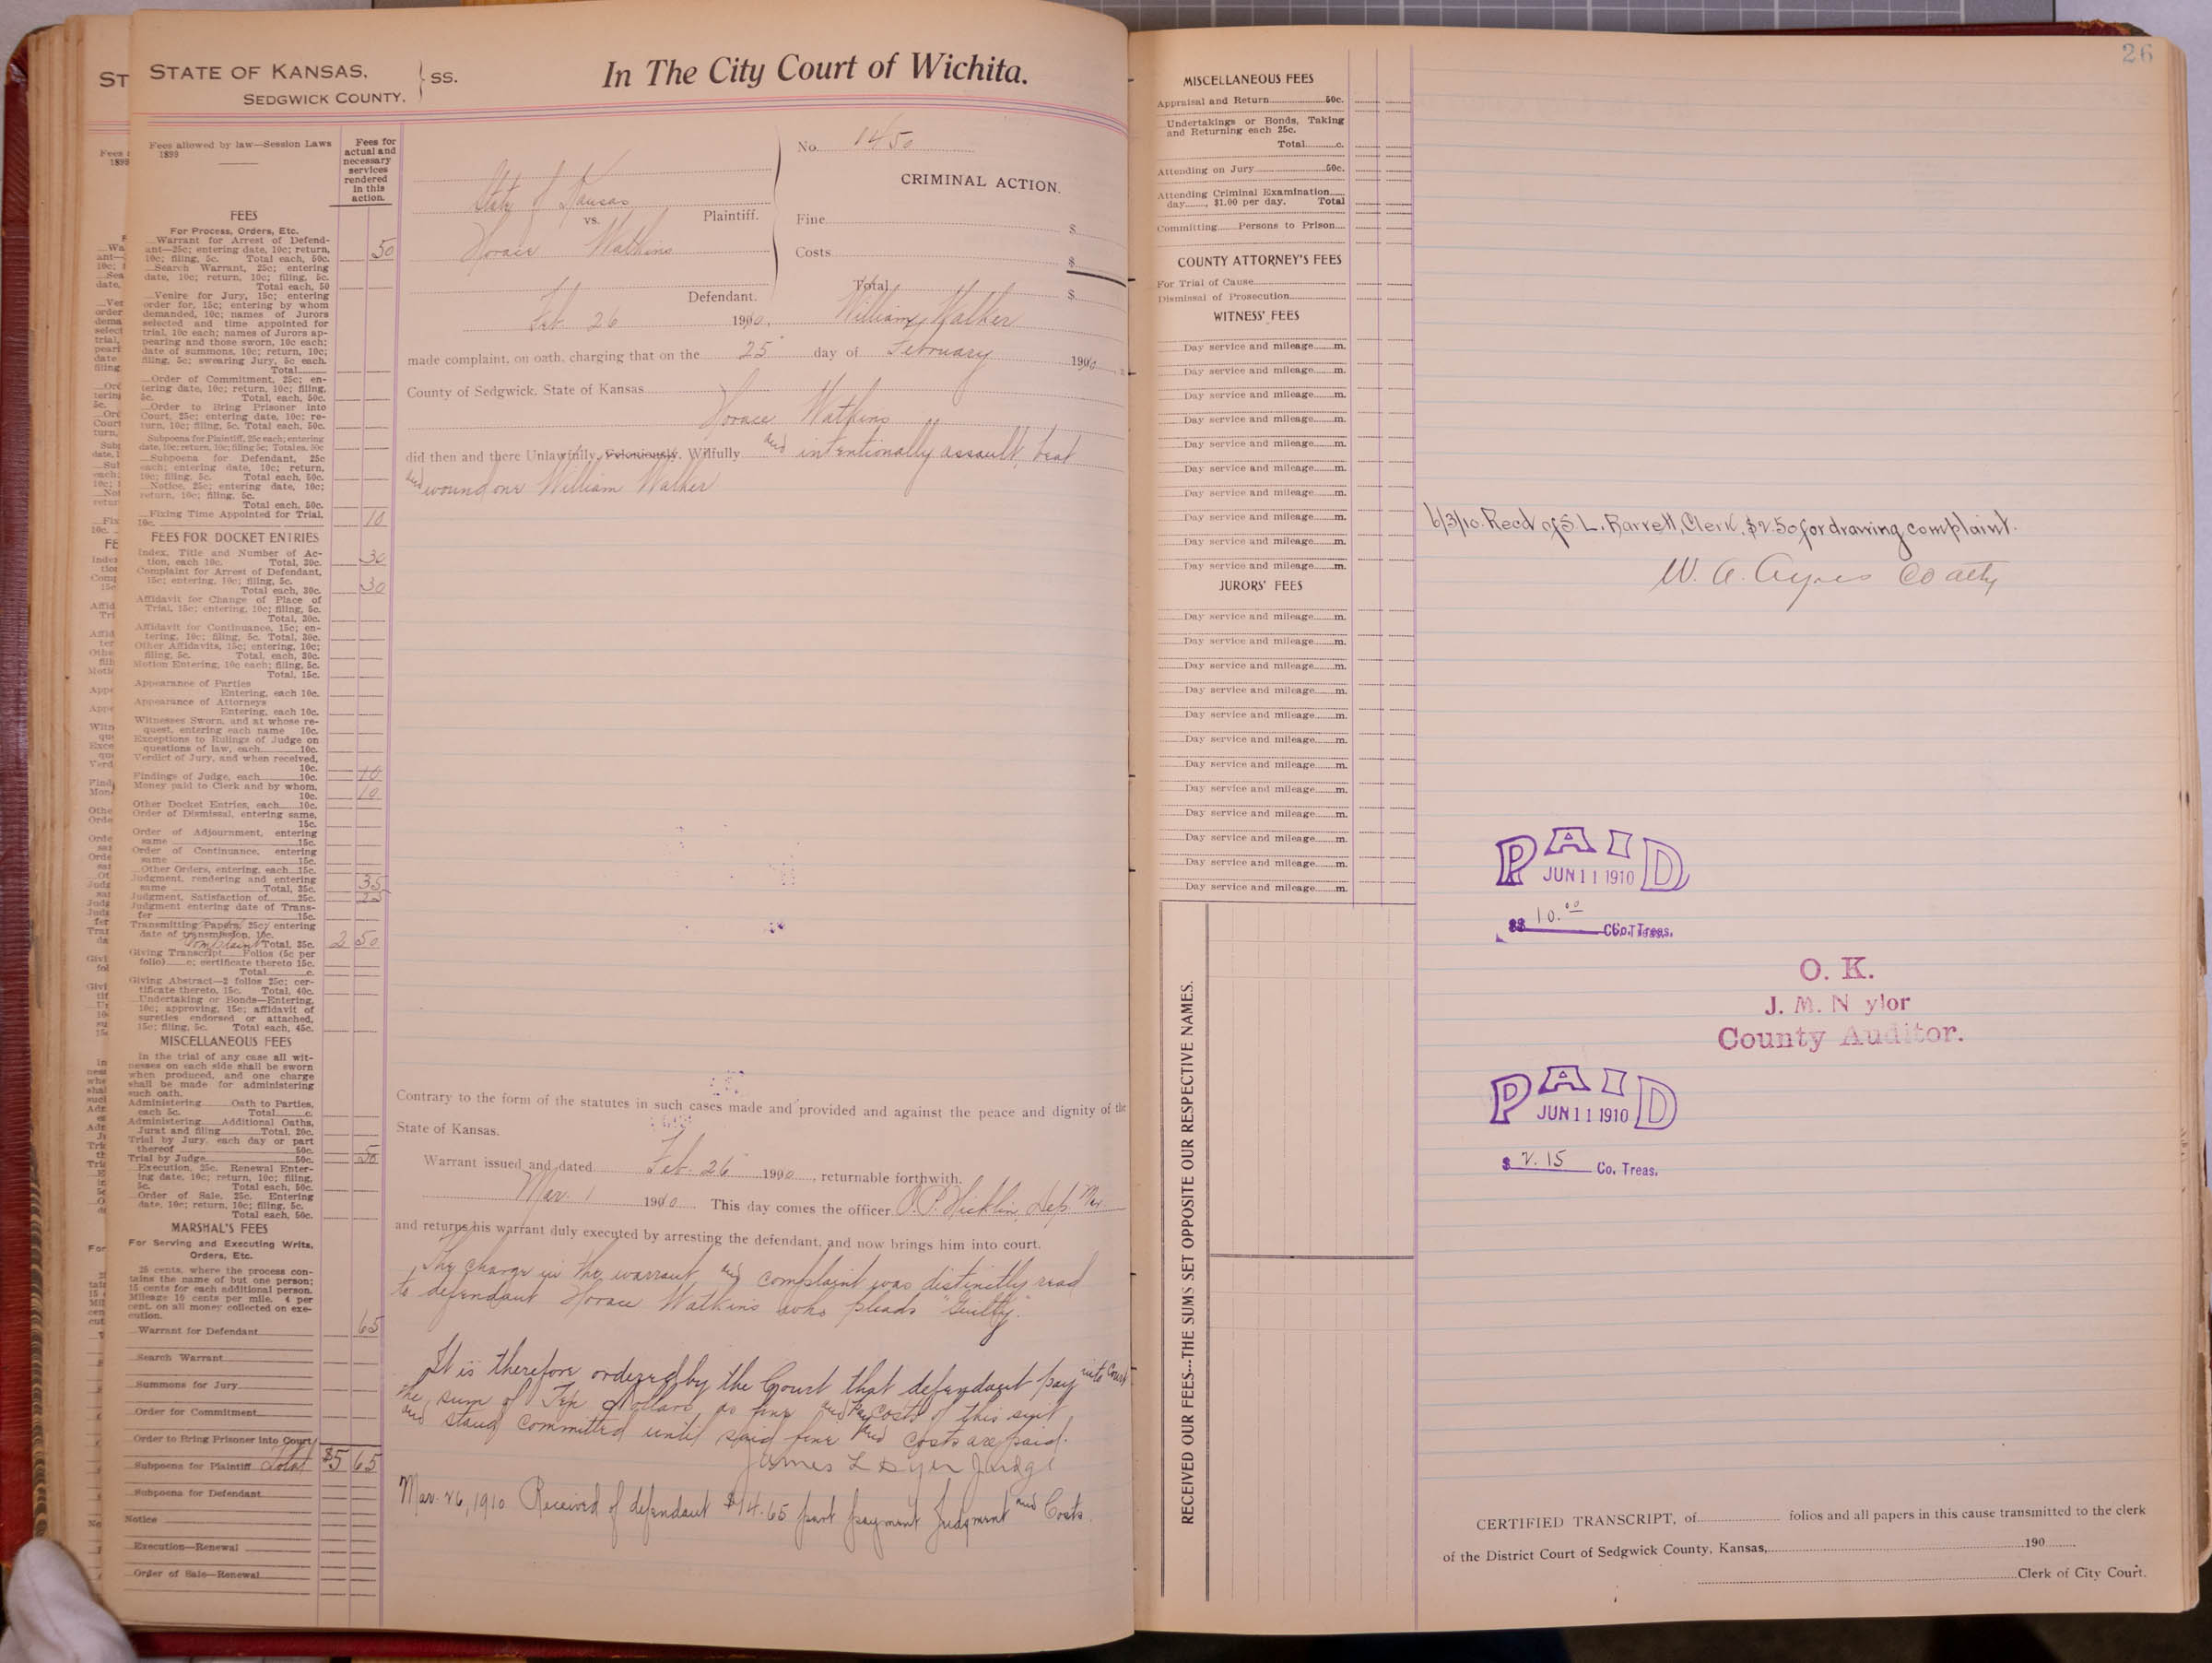 STATE OF KANSAS,
SEDGWICK COUNTY.
SS.
In The City Court of Wichita.
Fees allowed by law—Session Laws
1899
Fees for
actual and
necessary
services
rendered
in this
action.
FEES
For Process, Orders, Etc.
Warrant for Arrest of Defend-
ant—25c; entering date, 10c; return,
10c; filing, 5c. Total each, 50c. 50
Search Warrant, 25c; entering
date, 10c; return, 10c; filing, 5c.
Total each, 50
Venire for Jury, 15c; entering
order for, 15c; entering by whom
demanded, 10c; names of Jurors
selected and time appointed for
trial, 10c each; names of Jurors ap-
pearing and those sworn, 10c each;
date of summons, 10c; return, 10c;
filing, 5c; swearing Jury, 5c each.
Total
Order of Commitment, 25c; en-
tering date, 10c; return, 10c; filing,
5c. Total, each, 50c.
Order to Bring Prisoner into
Court, 25c; entering date, 10c; re-
turn, 10c; filing, 5c. Total each, 50c.
Subpoena for Plaintiff, 25c each; entering
date, 10c; return, 10c; filing 5c; Total ea. 50c
Subpoena for Defendant, 25c
each; entering date, 10c; return,
10c; filing, 5c. Total each, 50c.
Notice, 25c; entering date, 10c;
return, 10c; filing, 5c.
Total each, 50c.
Fixing Time Appointed for Trial,
10c. 10
FEES FOR DOCKET ENTRIES
Index, Title and Number of Ac-
tion, each 10c. Total, 30c. 30
Complaint for Arrest of Defendant,
15c; entering, 10c; filing, 5c.
Total each, 30c. 30
Affidavit for Change of Place of
Trial, 15c; entering, 10c; filing, 5c.
Total, 30c.
Affidavit for Continuance, 15c; en-
tering, 10c; filing, 5c. Total, 30c.
Other Affidavits, 15c; entering, 10c;
filing, 5c. Total, each, 30c.
Motion Entering, 10c each; filing, 5c.
Total, 15c.
Appearance of Parties
Entering, each 10c.
Appearance of Attorneys
Entering, each 10c.
Witnesses Sworn, and at whose re-
quest, entering each name 10c.
Exceptions to Rulings of Judge on
questions of law, each 10c.
Verdict of Jury, and when received,
10c.
Findings of Judge, each 10c. 10
Money paid to Clerk and by whom,
10c. 10
Other Docket Entries, each 10c.
Order of Dismissal, entering same,
15c.
Order of Adjournment, entering
same 15c.
Order of Continuance, entering
same 15c.
Other Orders, entering, each 15c.
Judgment, rendering and entering
same Total, 35c. 35
Judgment, Satisfaction of 25c. 25
Judgment entering date of Trans-
fer 15c.
Transmitting Papers, 25c; entering
date of transmission, 10c.
Complaint Total, 35c. 2 50
Giving Transcript Folios (5c per
folio) c; certificate thereto 15c.
Total c.
Giving Abstract—2 folios 25c; cer-
tificate thereto, 15c. Total, 40c.
Undertaking or Bonds—Entering,
10c; approving, 15c; affidavit of
sureties endorsed or attached,
15c; filing, 5c. Total each, 45c.
MISCELLANEOUS FEES
In the trial of any case all wit-
nesses on each side shall be sworn
when produced, and one charge
shall be made for administering
such oath.
Administering Oath to Parties,
each 5c. Total c.
Administering Additional Oaths,
Jurat and filing Total, 20c.
Trial by Jury, each day or part
thereof 50c.
Trial by Judge 50c. 50
Execution, 25c. Renewal Enter-
ing date, 10c; return, 10c; filing,
5c. Total each, 50c.
Order of Sale, 25c. Entering
date, 10c; return, 10c; filing, 5c.
Total each, 50c.
MARSHAL'S FEES
For Serving and Executing Writs,
Orders, Etc.
25 cents, where the process con-
tains the name of but one person;
15 cents for each additional person.
Mileage 10 cents per mile. 4 per
cent. on all money collected on exe-
cution.
Warrant for Defendant 65
Search Warrant
Summons for Jury
Order for Commitment
Order to Bring Prisoner into Court
Subpoena for Plaintiff Total $5 65
Subpoena for Defendant
Notice
Execution—Renewal
Order of Sale—Renewal
No. 1450
CRIMINAL ACTION.
State of Kansas
vs. Plaintiff.
Horace Watkins
Defendant.
Fine $
Costs $
Total $
Feb. 26 1910. William Walker
made complaint, on oath, charging that on the 25 day of February 1910
County of Sedgwick, State of Kansas
Horace Watkins
did then and there Unlawfully, Feloniously, Wilfully and intentionally assault, beat
and wound one William Walker
Contrary to the form of the statutes in such cases made and provided and against the peace and dignity of the
State of Kansas.
Warrant issued and dated Feb. 26 1910, returnable forthwith.
Mar. 1 1910 This day comes the officer O. P. Hicklin, Dep. Mar.
and returns his warrant duly executed by arresting the defendant, and now brings him into court.
The charge in the warrant and complaint was distinctly read
to defendant Horace Watkins who pleads "Guilty".
It is therefore ordered by the Court that defendant pay into Court
the sum of Ten Dollars as fine and pay costs of this suit
and stand committed until said fine and costs are paid.
James L Dyer Judge
Mar. 26, 1910 Received of defendant $14.65 part payment Judgment and Costs.
26
MISCELLANEOUS FEES
Appraisal and Return 50c.
Undertakings or Bonds, Taking
and Returning each 25c.
Total c.
Attending on Jury 50c.
Attending Criminal Examination
day , $1.00 per day. Total
Committing Persons to Prison
COUNTY ATTORNEY'S FEES
For Trial of Cause
Dismissal of Prosecution
WITNESS' FEES
Day service and mileage m.
Day service and mileage m.
Day service and mileage m.
Day service and mileage m.
Day service and mileage m.
Day service and mileage m.
Day service and mileage m.
Day service and mileage m.
Day service and mileage m.
Day service and mileage m.
JURORS' FEES
Day service and mileage m.
Day service and mileage m.
Day service and mileage m.
Day service and mileage m.
Day service and mileage m.
Day service and mileage m.
Day service and mileage m.
Day service and mileage m.
Day service and mileage m.
Day service and mileage m.
Day service and mileage m.
Day service and mileage m.
RECEIVED OUR FEES---THE SUMS SET OPPOSITE OUR RESPECTIVE NAMES.
6/3/10. Recd of S. L. Barrett, Clerk, $2.50 for drawing complaint.
W. A. Ayres Co atty
PAID
JUN 11 1910
$ 10.00 Co. Treas.
O. K.
J. M. N ylor
County Auditor.
PAID
JUN 11 1910
$ 2.15 Co. Treas.
CERTIFIED TRANSCRIPT, of folios and all papers in this cause transmitted to the clerk
of the District Court of Sedgwick County, Kansas, 190
Clerk of City Court.